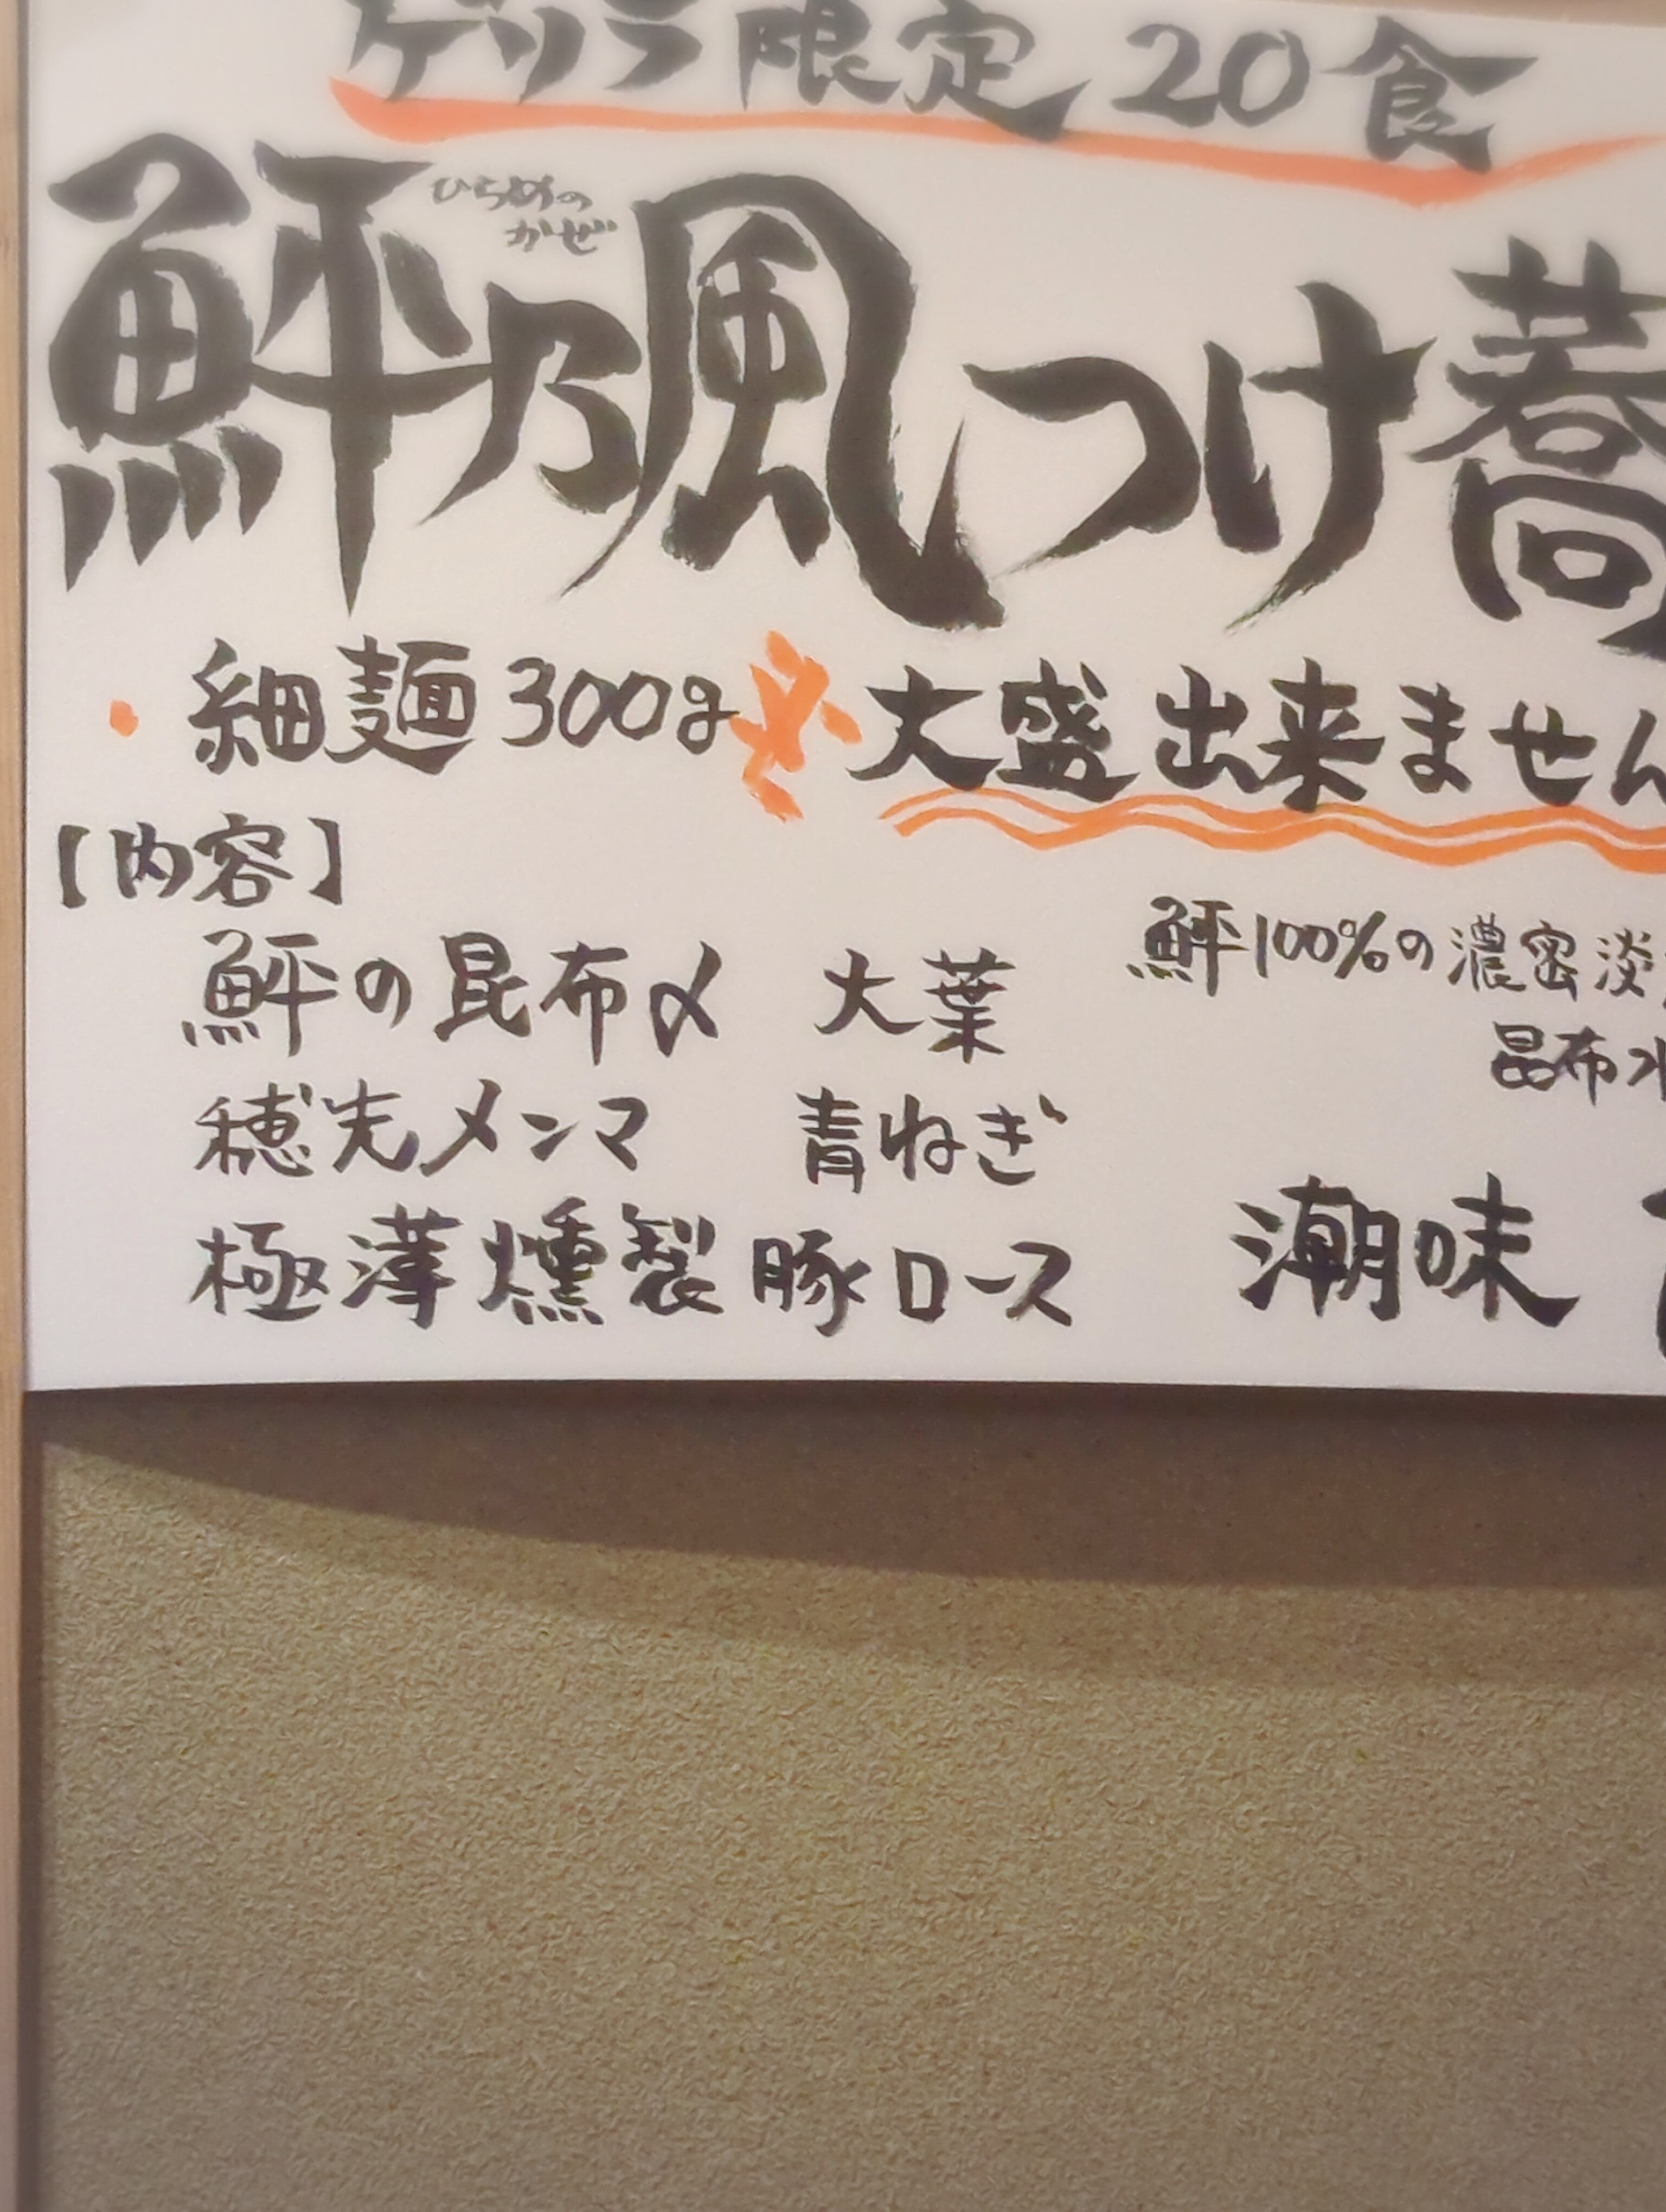 ゲリラ限定20食
鮃乃風つけ蕎
ひらめの
かぜ
・細麺300g 大盛出来ません
【内容】
鮃の昆布〆 大葉
鮃100%の濃密淡
昆布水
穂先メンマ 青ねぎ
極薄燻製豚ロース
潮味